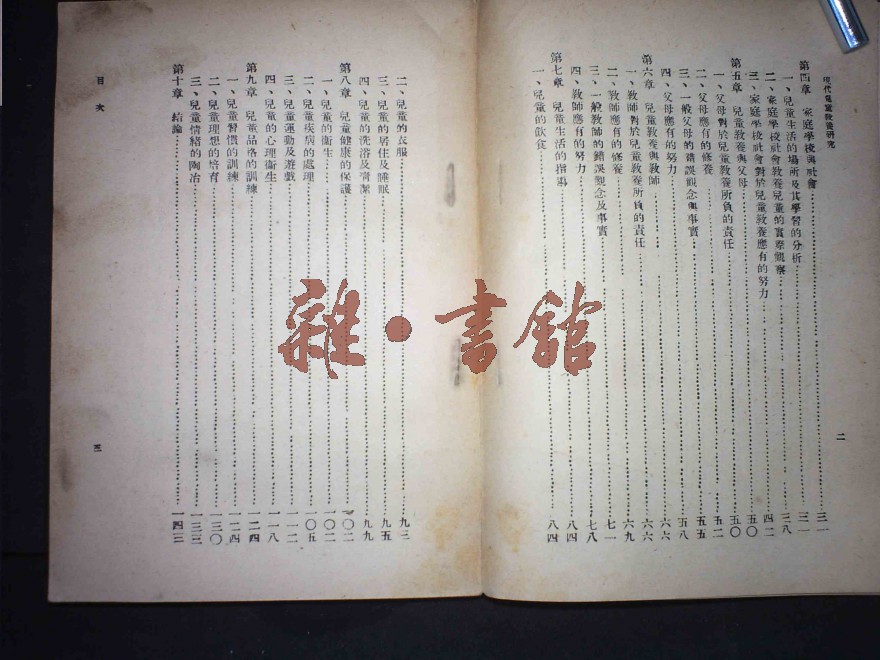 現代兒童教養研究
第四章 家庭學校與社會……三一
一、兒童生活的場所及其學習的分析……三一
二、家庭學校社會教養兒童的實際觀察……三八
三、家庭學校社會對於兒童教養應有的努力……四二
第五章 兒童教養與父母……五〇
一、父母對於兒童教養所負的責任……五〇
二、父母應有的修養……五二
三、一般父母的錯誤觀念與事實……五五
四、父母應有的努力……五八
第六章 兒童教養與教師……六六
一、教師對於兒童教養所負的責任……六六
二、教師應有的修養……六九
三、一般教師的錯誤觀念及事實……七一
四、教師應有的努力……七八
第七章 兒童生活的指導……八四
一、兒童的飲食……八四
二
二、兒童的衣服……九三
三、兒童的居住及睡眠……九五
四、兒童的洗浴及清潔……九九
第八章 兒童健康的保護……一〇二
一、兒童的衛生……一〇二
二、兒童疾病的處理……一〇五
三、兒童運動及遊戲……一一二
四、兒童的心理衛生……一一八
第九章 兒童品格的訓練……一二四
一、兒童習慣的訓練……一二四
二、兒童理想的培育……一三〇
三、兒童情緒的陶冶……一三三
第十章 結論……一四三
目次
三
雜·書館